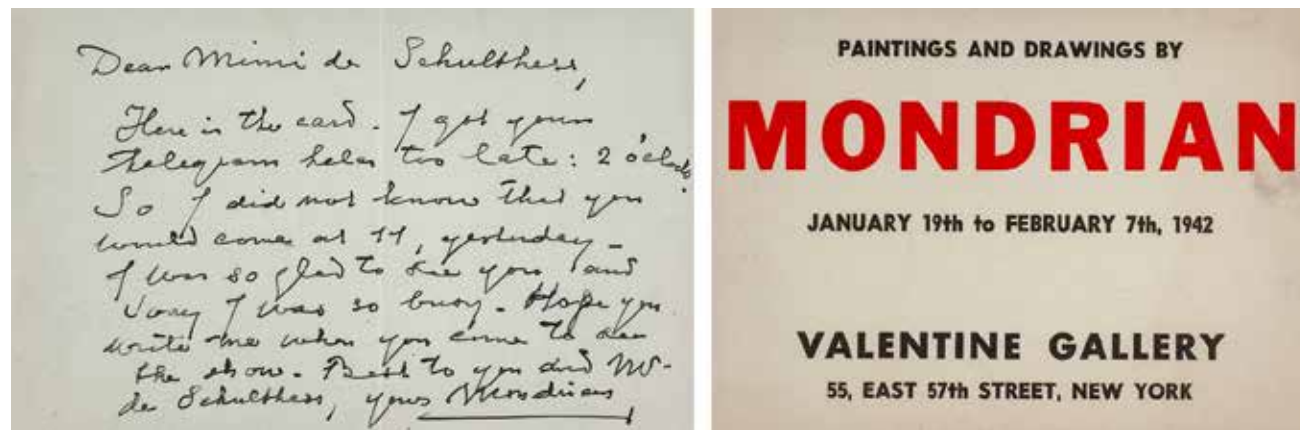 Dear Mimi de Schulthess,
Here is the card. I got your
telegram helas too late: 2 o'clock.
So I did not know that you
would come at 11, yesterday –
I was so glad to see you and
sorry I was so busy. Hope you
write me when you come to see
the show. Best to you and Mr.
de Schulthess, yours Mondrian
PAINTINGS AND DRAWINGS BY
MONDRIAN
JANUARY 19th to FEBRUARY 7th, 1942
VALENTINE GALLERY
55, EAST 57th STREET, NEW YORK